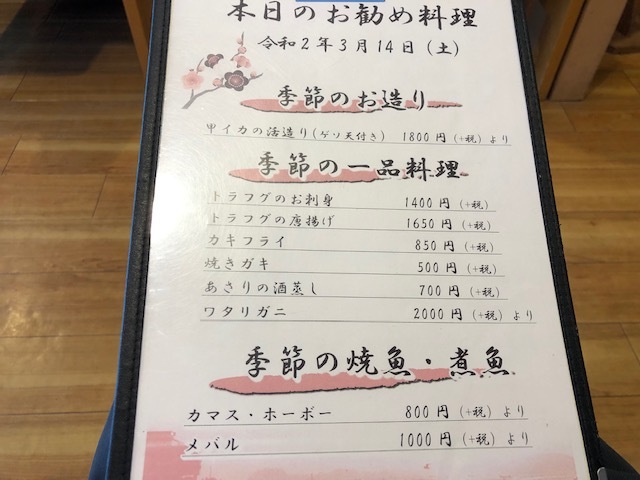 本日のお勧め料理
令和2年3月14日(土)
季節のお造り
甲イカの活造り(ゲソ天付き) 1800円(+税)より
季節の一品料理
トラフグのお刺身 1400円(+税)
トラフグの唐揚げ 1650円(+税)
カキフライ 850円(+税)
焼きガキ 500円(+税)
あさりの酒蒸し 700円(+税)
ワタリガニ 2000円(+税)より
季節の焼魚・煮魚
カマス・ホーボー 800円(+税)より
メバル 1000円(+税)より